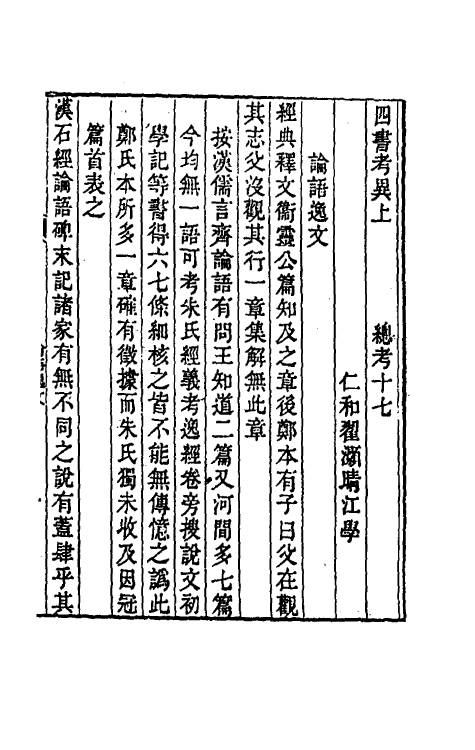 四書考異上 總考十七
仁和翟灝晴江學
論語逸文
經典釋文衞靈公篇知及之章後鄭本有子曰父在觀
其志父沒觀其行一章集解無此章
按漢儒言齊論語有問王知道二篇又河間多七篇
今均無一語可考朱氏經義考逸經卷旁搜說文初
學記等書得六七條細核之皆不能無傳憶之譌此
鄭氏本所多一章確有徵據而朱氏獨未收及因冠
篇首表之
漢石經論語碑末記諸家有無不同之說有蓋肆乎其